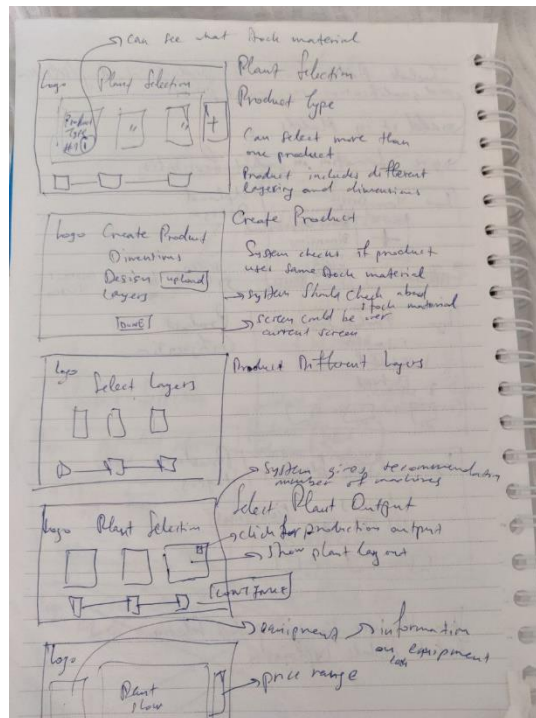 can see what stock material
Logo Plant Selection
Product
Type
#1
"
"
+
Plant Selection
Product Type
Can select more than
one product
Product includes different
layering and dimensions
Logo Create Product
Dimentions
Design upload
Layers
Done
Create Product
System checks if product
uses same stock material
system should check about
stock material
screen could be over
current screen
Logo
Select Layers
Product Different Layers
System gives recommendation
number of machines
Select Plant Output
Logo Plant Selection
click for production output
show plant layout
equipment
information
on equipment
Logo
Plant
price range